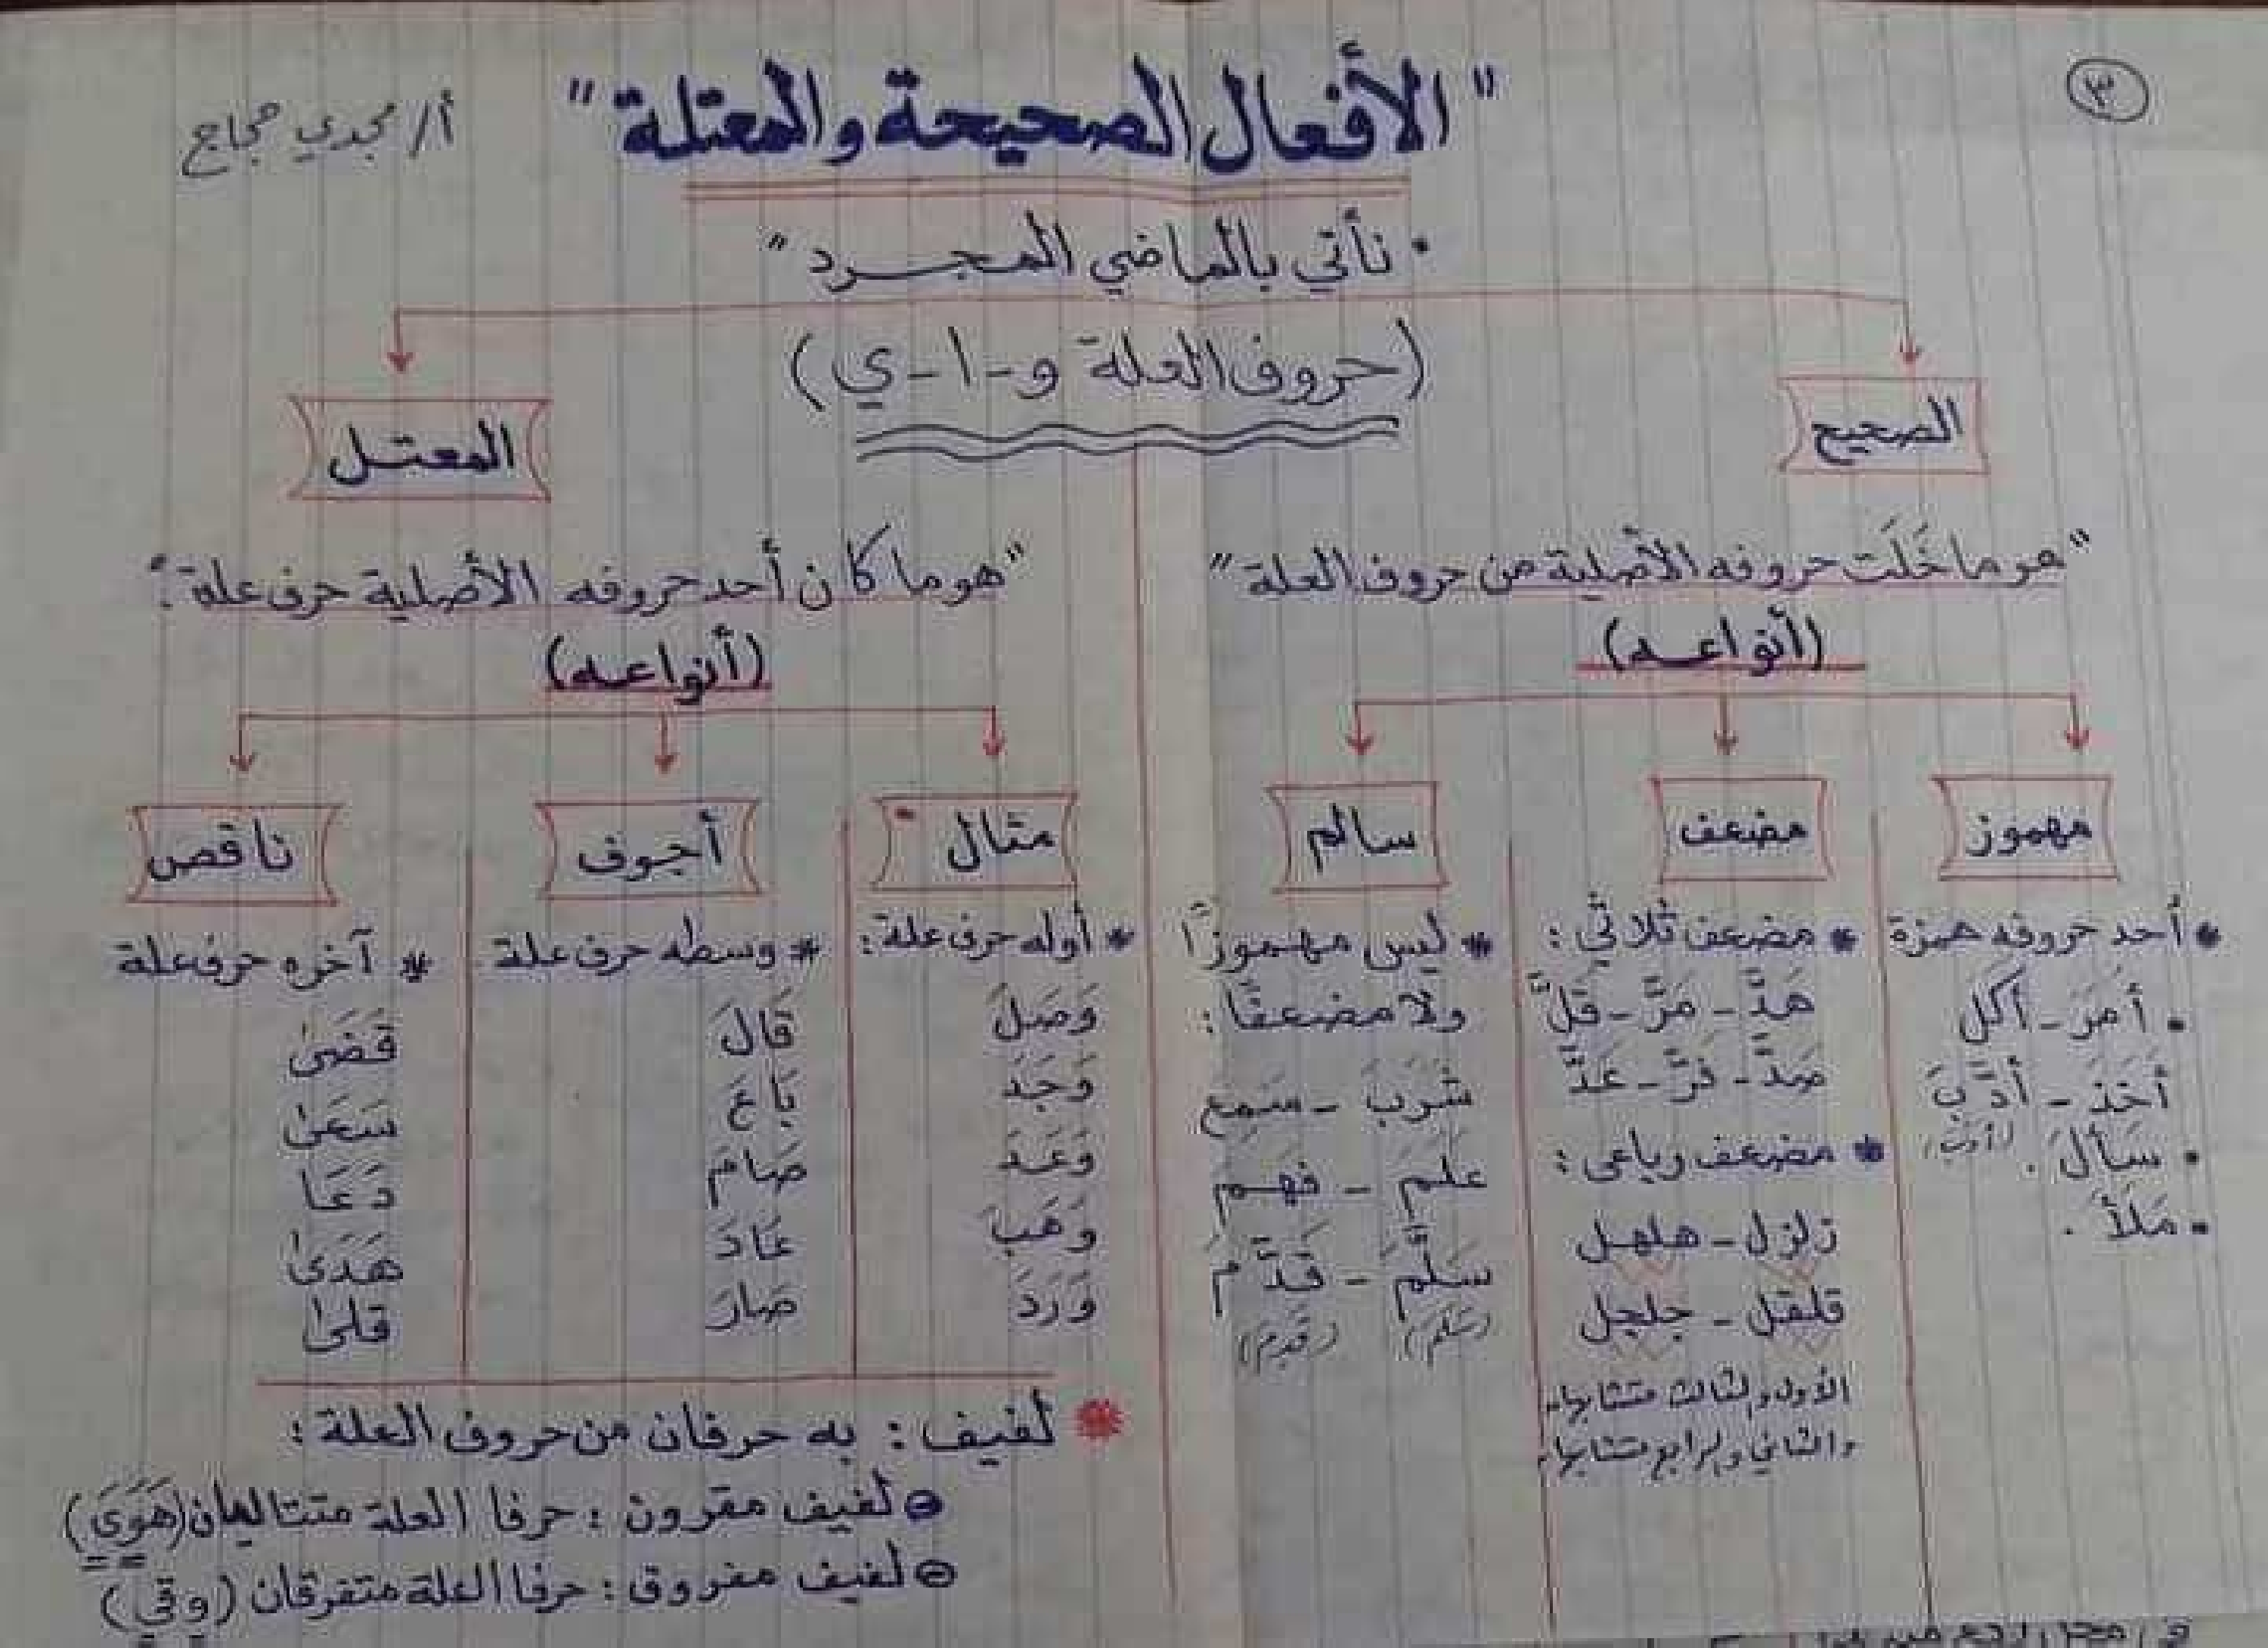 ٣
"الأفعال الصحيحة والمعتلة"
أ/ مجدي حجاج
• نأتي بالماضي المجرد"
(حروف العلة و-ا-ي)
الصحيح
"هو ما خَلَت حروفه الأصلية من حروف العلة"
(أنواعه)
مهموز
* أحد حروفه همزة
• أمَرَ - أكل
أخَذَ - أدَّبَ
(أدب)
• سَألَ .
• مَلَأَ .
مضعف
* مضعف ثلاثي :
هَدَّ - مَرَّ - قَلَّ
صَدَّ - فَرَّ - عَدَّ
* مضعف رباعي :
زلزل - هلهل
قلقل - جلجل
الأول والثالث متشابها
والثاني والرابع متشابها
سالم
* ليس مهموزًا
ولا مضعفًا :
شَرَبَ - سَمِعَ
عَلَمَ - فَهِمَ
سَلَّمَ - قَدَّمَ
(سَلَمَ) (قَدِمَ)
المعتل
"هو ما كان أحد حروفه الأصلية حرف علة":
(أنواعه)
مثال
* أوله حرف علة :
وَصَلَ
وَجَدَ
وَعَدَ
وَهَبَ
وَرَدَ
أجوف
* وسطه حرف علة
قَالَ
بَاعَ
صَامَ
عَادَ
صَارَ
ناقص
* آخره حرف علة
قَضَىٰ
سَعَىٰ
دَعَا
هَدَىٰ
قلىٰ
لفيف : به حرفان من حروف العلة :
لفيف مقرون : حرفا العلة متتاليان (هَوَىَ)
لفيف مفروق : حرفا العلة متفرقان (وقي)